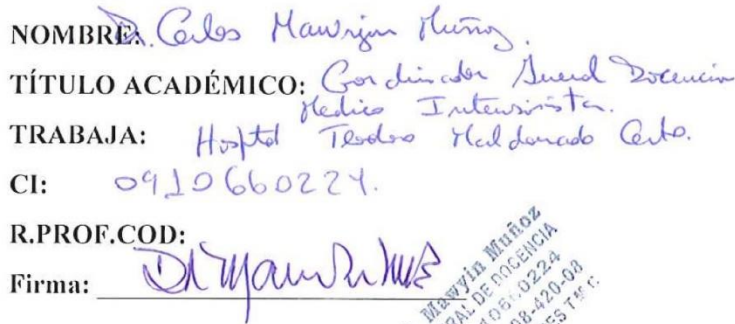 NOMBRE: Dr. Carlos Mawyin Muñoz.
TÍTULO ACADÉMICO: Coordinador General Docencia
Medico Intensivista.
TRABAJA: Hospital Teodoro Maldonado Carbo.
CI: 0910660224.
R.PROF.COD:
Firma:
Mawyin Muñoz
RAL DE DOCENCIA
10660224
08-420-08
ES T.M.C.